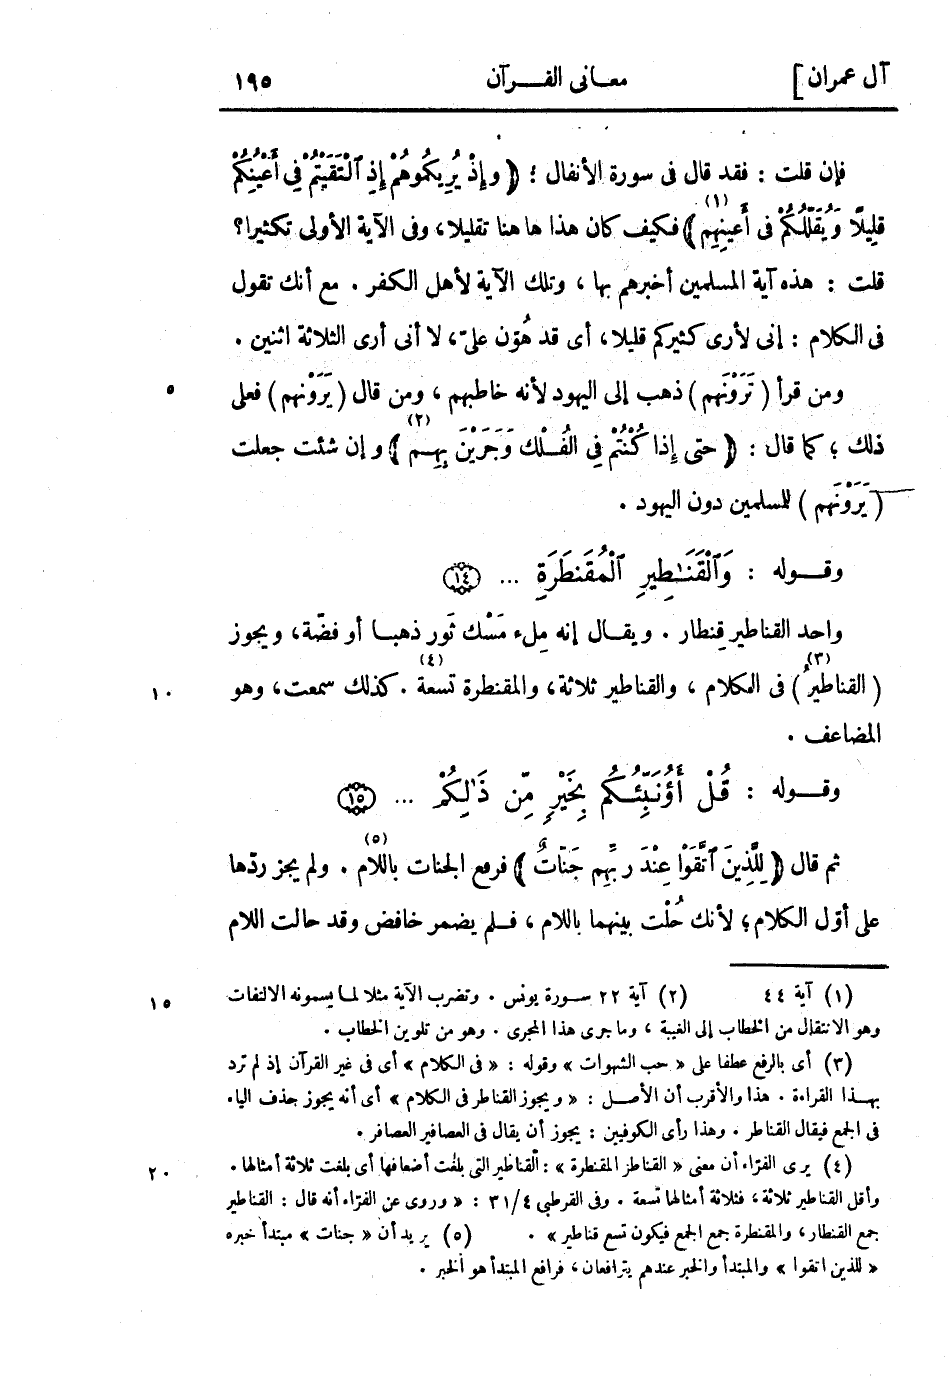 آل عمران] معانى القـرآن ١٩٥
فإن قلت : فقد قال فى سورة الأنفال : ﴿ وإذْ يُرِيكُمُوهُمْ إِذِ ٱلْتَقَيْتُمْ فِى أَعْيُنِكُمْ
قَلِيلًا وَيُقَلِّلُكُمْ فِى أَعينِهِم ﴾(١) فكيف كان هذا ها هنا تقليلا، وفى الآية الأولى تكثيرا؟
قلت : هذه آية المسلمين أخبرهم بها ، وتلك الآية لأهل الكفر . مع أنك تقول
فى الكلام : إنى لأرى كثيركم قليلا، أى قد هُوّن علىّ، لا أنى أرى الثلاثة اثنين .
ومن قرأ ( تَرَوْنَهم ) ذهب إلى اليهود لأنه خاطبهم ، ومن قال ( يَرَوْنهم ) فعلى ٥
ذلك ؛ كما قال : ﴿ حتى إِذَا كُنْتُمْ فِى الفُـلْك وَجَرَيْنَ بِهِـم ﴾(٢) وإن شئت جعلت
( يَرَوْنَهم ) للمسلمين دون اليهود .
وقـوله : وَٱلْقَنَـٰطِيرِ ٱلْمُقَنطَرَةِ ... ⁧١٤⁩
واحد القناطير قِنطار . ويقـال إنه مِلء مَسْك ثَور ذهبـا أو فضّة، ويجوز
( القناطيرُ )(٣) فى الكلام ، والقناطير ثلاثة، والمقنطرة تسعة(٤) . كذلك سمعت، وهو ١٠
المضاعف .
وقـوله : قُلْ أَؤُنَبِّئُـكُم بِخَيْرٍ مِّن ذَٰلِكُمْ ... ١٥
ثم قال ﴿ لِلَّذِينَ ٱتَّقَوْا عِنْدَ رَبِّهِم جَنَّاتٌ ﴾(٥) فرفع الجنات باللام . ولم يجز ردّها
على أوّل الكلام؛ لأنك حُلْت بينهما باللام ، فـلم يضمر خافض وقد حالت اللام
(١) آية ٤٤ (٢) آية ٢٢ سـورة يونس . وتضرب الآية مثلا لما يسمونه الالتفات ١٥
وهو الانتقال من الخطاب إلى الغيبة ، وما جرى هذا المجرى . وهو من تلوين الخطاب .
(٣) أى بالرفع عطفا على « حب الشهوات » وقوله : « فى الكلام » أى فى غير القرآن إذ لم ترد
بهـذا القراءة . هذا والأقرب أن الأصـل : « ويجوز القناطر فى الكلام » أى أنه يجوز حذف الياء
فى الجمع فيقال القناطر . وهذا رأى الكوفيين : يجوز أن يقال فى العصافير العصافر .
(٤) يرى الفرّاء أن معنى « القناطر المقنطرة » : القناطير التى بلغت أضعافها أى بلغت ثلاثة أمثالها . ٢٠
وأقل القناطير ثلاثة ، فثلاثة أمثالها تسعة . وفى القرطبى ٣١/٤ : « وروى عن الفرّاء أنه قال : القناطير
جمع القنطار، والمقنطرة جمع الجمع فيكون تسع قناطير » . (٥) يريد أن « جنات » مبتدأ خبره
« للذين اتقوا » والمبتدأ والخبر عندهم يترافعان، فرافع المبتدأ هو الخبر .